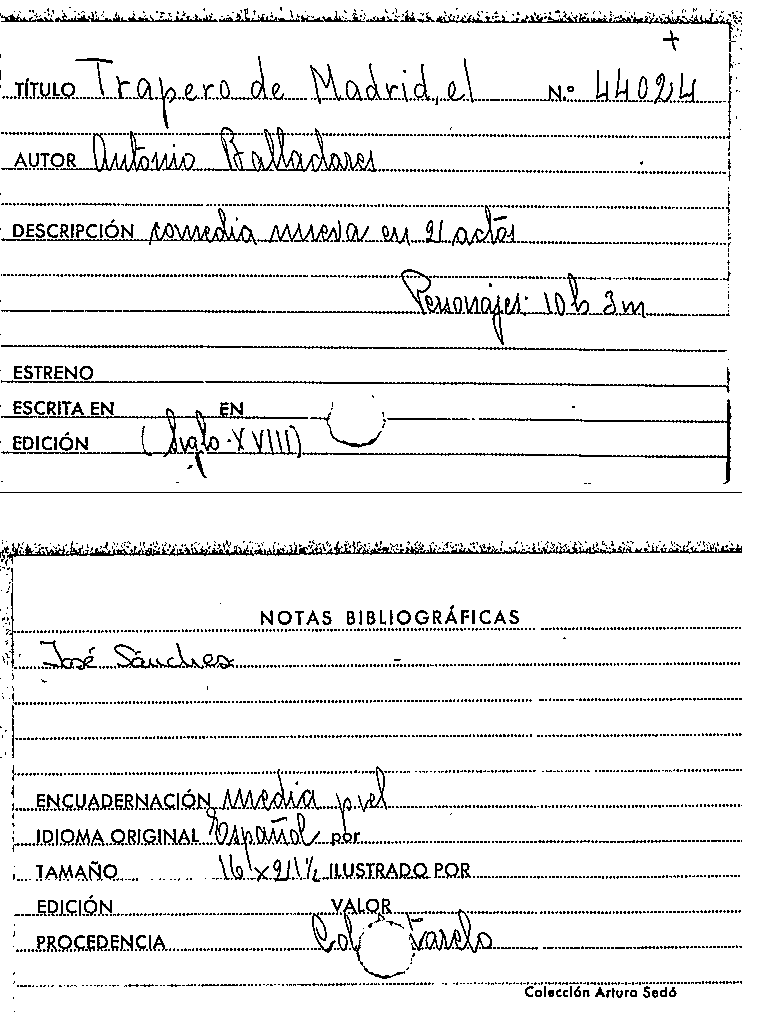 +
TÍTULO Trapero de Madrid, el N.º 44024
AUTOR Antonio Balladares
DESCRIPCIÓN comedia nueva en 2 actos
Personajes: 10 h 3 m
ESTRENO
ESCRITA EN EN
EDICIÓN (Siglo XVIII)
NOTAS BIBLIOGRÁFICAS
José Sánchez
ENCUADERNACIÓN media piel
IDIOMA ORIGINAL Español por
TAMAÑO 16 x 21 ½ ILUSTRADO POR
EDICIÓN VALOR
PROCEDENCIA Col Varela
Colección Arturo Sedó